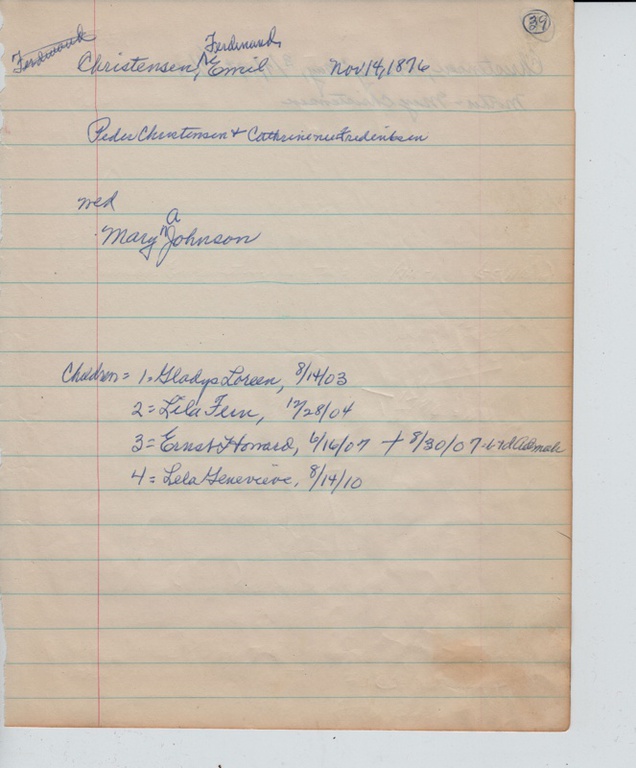 39
Ferdinand
Christensen, Emil Ferdinand, Nov 14, 1876
Peder Christensen + Cathrine nee Frederiksen
wed
Mary A Johnson
Children = 1. Gladys Loreen, 8/14/03
2 = Lila Fern, 12/28/04
3 = Ernst Howard, 6/16/07 + 8/30/07
4 = Lela Genevieve, 8/14/10